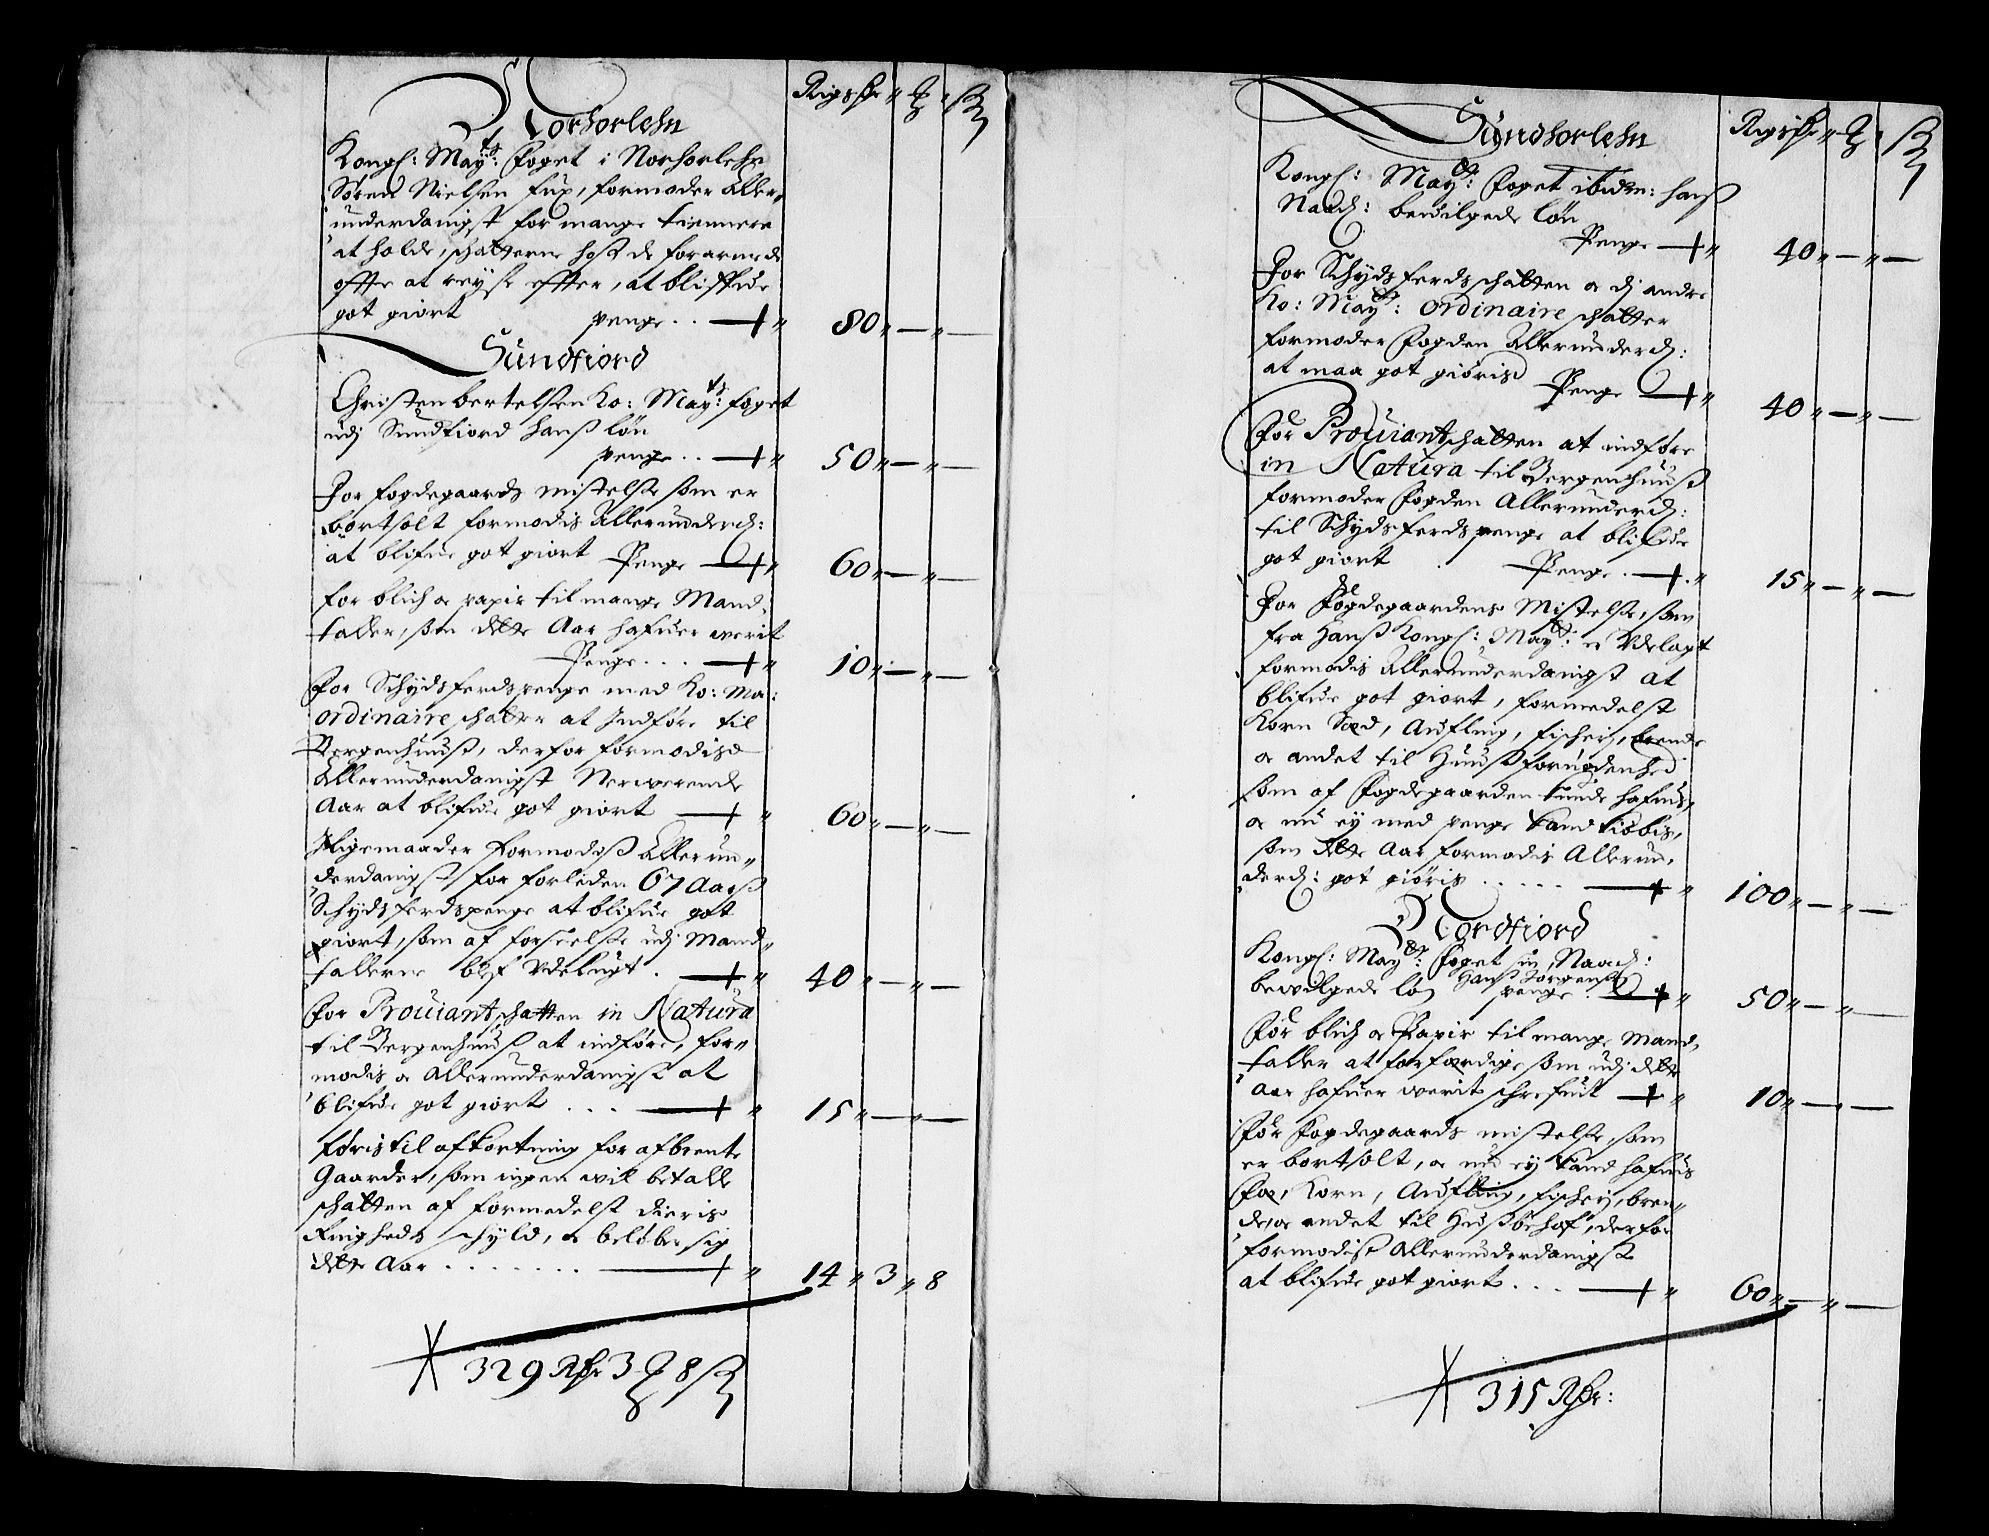 Norhorlehn
Rigsdr
Kongl: May:ts Foget i Norhorlehn
Søren Nielsen Fux, formoder Aller
underdanigst for mange tiennere
at holde, schatterne hoß de forarmede
offte at reyse effter, at bliffue
got giort penge . . 80 „ — „ —
Sundfiord
Christen bertelsen Ko: May:ts foget
udj Sundfiord hanß løn
penge . . 50 „ — „ —
For fogdegaards mistelse som er
bortsolt formodis Allerunderd:
at blifue got giort Penge 60 „ — „ —
for blich oc papir til mange Mand
taller, som dette Aar hafuer werit
Penge . . . 10 „ — „ —
For Schydsferds penge med Ko: Ma:
ordinaire schatter at Indføre til
Bergenhuuß, derfor formodis
Allerunderdanigst Nerwerende
Aar at blifue got giort 60 „ — „ —
Ligemaader formodiß Allerun„
derdanigst for forleden 67 Aarß
Schydsferds penge at blifue got
giort, som af forseelse udj Mand„
tallerne blef Udelugt . 40 „ — „ —
For Prouiantschatten in Natura
til Bergenhuuß at indføre, for„
modis oc Allerunderdanigst at
blifue got giort . . . 15 „ — „ —
Føris til afkortning for afbrente
Gaarder, som ingen wil betalle
schatten af formedelst dieris
Ringheds schyld, oc beløber sig
dette Aar . . . . . . . 14 „ 3 „ 8
329 Rdr 3 8
Sundhorlehn
Rigsdr
Kongl: May:ts Foget ibidem: hanß
Naad: bewilgede løn
Penge 40 „ — „ —
For Schydsferds schatten oc dj andre
Ko: May:ts ordinaire schatter
formoder Fogden Allerunderd:
at maa got giøris Penge 40 „ — „ —
For Prouiantschatten at indføre
in Natura til Bergenhuuß
formoder Fogden Allerunderd:
til Schydsferds penge at blifue
got giort . Penge . 15 „ — „ —
For Fogdegaardens Mistelse, som
fra Hanß Kongl: May:ts er Udelagt
formodis Allerunderdanigst at
blifue got giort, formedelst
Korn Sæd, Aufling, fischerj, brende
oc andet til Huuß fornødenhed
som af Fogdegaarden kunde hafuis,
oc nu ey med penge kand kiøbis,
som dette Aar formodis Allerun,
derd: got giøris . . . . . 100 „ — „ —
Nordfiord
Kongl: May:ts Foget sin Naad:
Hanß Jørgensøn
bewilgede løn penge . 50 „ — „ —
For blich oc Papir til mange Mand,
taller at forfærdige som udj dette
Aar hafuer werit schrefuit 10 „ — „ —
For Fogdegaards mistelse, som
er bortsolt, oc nu ey kand hafuis
Foe, Korn, Aufling, fischerj, bren„
de, oc andet til Hußbehof, derfor
formodiß Allerunderdanigst
at blifue got giort . . . 60 „ — „ —
315 Rdr: